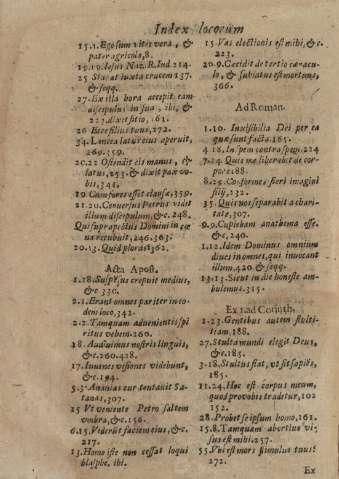 Index locorum
15.1. Ego sum vitis vera, &
pater agricola, 8.
19.19. Iesus Naz. R. Ind 214.
25 Stabat iuxta crucem 137.
& seqq.
27. Ex illa hora accepit eam
discipulus in sua, ibi, &
223. dixit sitio, 161.
26 Ecce filius tuus, 172.
34. Lancea latus eius aperuit,
269. 359.
20.22 Ostendit eis manus, &
latus, 253. & dixit pax vo-
bis, 344.
19 Cum fores esset clausæ, 359.
21.20. Conuersus Petrus vidit
illum discipulum, & c. 248.
Qui supra pectus Domini in cœ-
na recubuit, 246. 363.
20.13. Quid ploras? 362.
Acta Apost.
1.18. Suspensus crepuit medius,
&c. 330.
2.1. Erant omnes pariter in eo-
dem loco, 342.
2.2. Tamquam aduenientis spi
ritus vehem. 260.
18. Audiuimus nostris linguis,
&c. 260. 428.
17. Iuuenes visiones videbunt,
&c. 194.
5.3. Anania cur tentauit Sa-
tanas, 307.
15 Vt veniente Petro saltem
vmbra, &c. 156.
6.15. Viderũt faciem eius, &c.
217.
13. Homo iste non cessat loqui
blasphe, ibi.
15 Vas electionis est mihi, &c.
223.
20.9. Cecidit de tertio cœnacu-
lo, & sublatus est mortuus,
366.
Ad Roman.
1.10. Inuisibilia Dei per ea
quæ sunt facta. 165.
4.18. In spem contra spem. 224
7.24. Quis me liberabit de cor-
pore. 188.
8.25. Conformes fieri imagini
filij, 232.
35. Quis nos separabit a chari-
tate, 307.
9.9. Cupiebam anathema esse.
&c, 240.
1.12. Idem Dominus omnium
diues in omnes, qui inuocant
illum, 420 & seqq.
13.13. Sicut in die honeste am-
bulemus. 315.
Ex 1. ad Corinth.
1.23. Gentibus autem stulti-
tiam, 188.
27. Stulta mundi elegit Deus,
&c. 185.
3.18. Stultus fiat, vt sit sapiẽs,
185.
11.24. Hoc est corpus meum,
quod pro vobis tradetur, 102
152.
28. Probet se ipsum homo, 261.
15.8. Tamquam abortiuo vi-
sus est mihi. 257.
55. Vbi est mors stimulus tuus?
272.
Ex